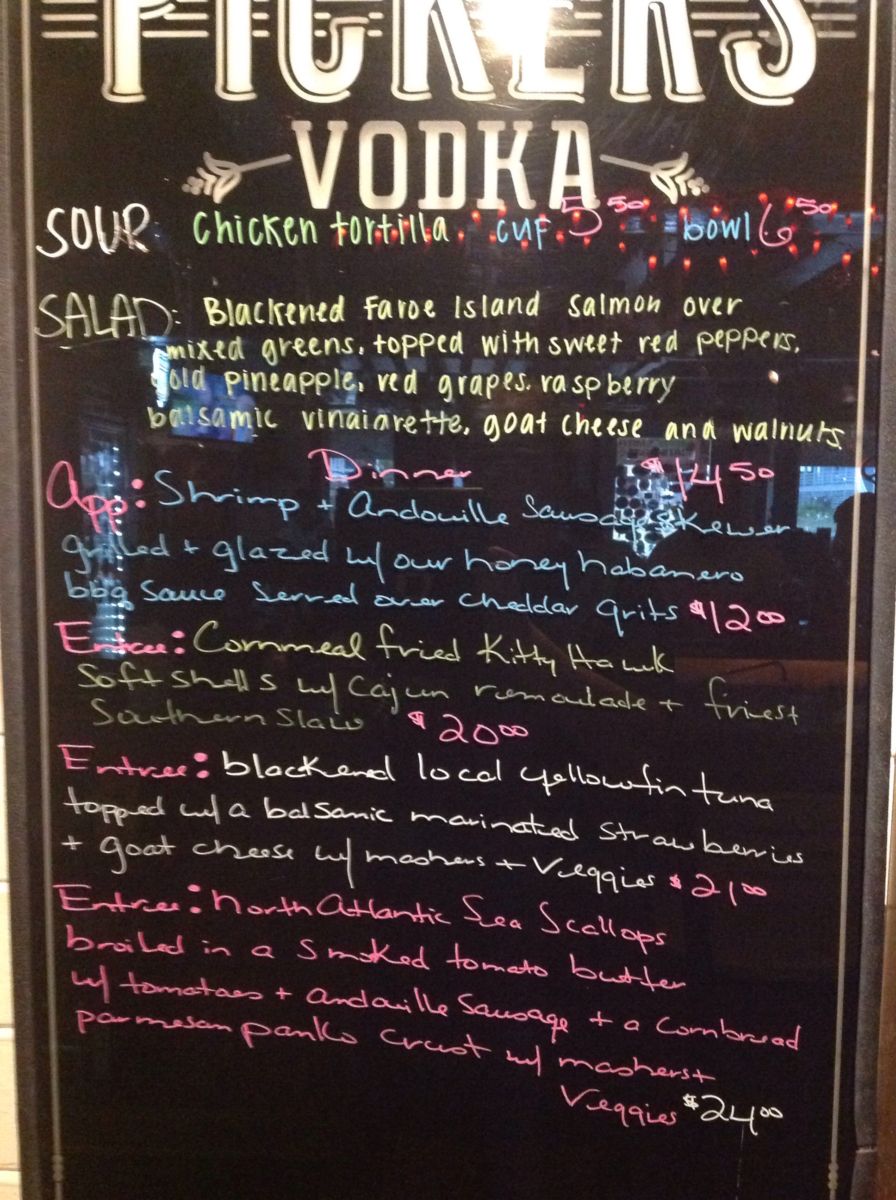 PICKERS
VODKA
SOUP: Chicken tortilla. cup 5 50 bowl 6 50
SALAD: Blackened Faroe Island salmon over
mixed greens, topped with sweet red peppers,
gold pineapple, red grapes, raspberry
balsamic vinaigrette, goat cheese and walnuts
Dinner $14 50
App: Shrimp + Andouille Sausage Skewer
grilled + glazed w/ our honey habanero
bbq sauce served over cheddar grits $12 00
Entree: Cornmeal fried Kitty Hawk
Soft shells w/ Cajun remoulade + finest
Southern slaw $20 00
Entree: blackend local yellowfin tuna
topped w/ a balsamic marinatied strawberries
+ goat cheese w/ mashers + Veggies $21 00
Entree: North Atlantic Sea Scallops
broiled in a smoked tomato butter
w/ tomatoes + Andouille Sausage + a Cornbread
parmesan panko crust w/ mashers +
Veggies $24 00